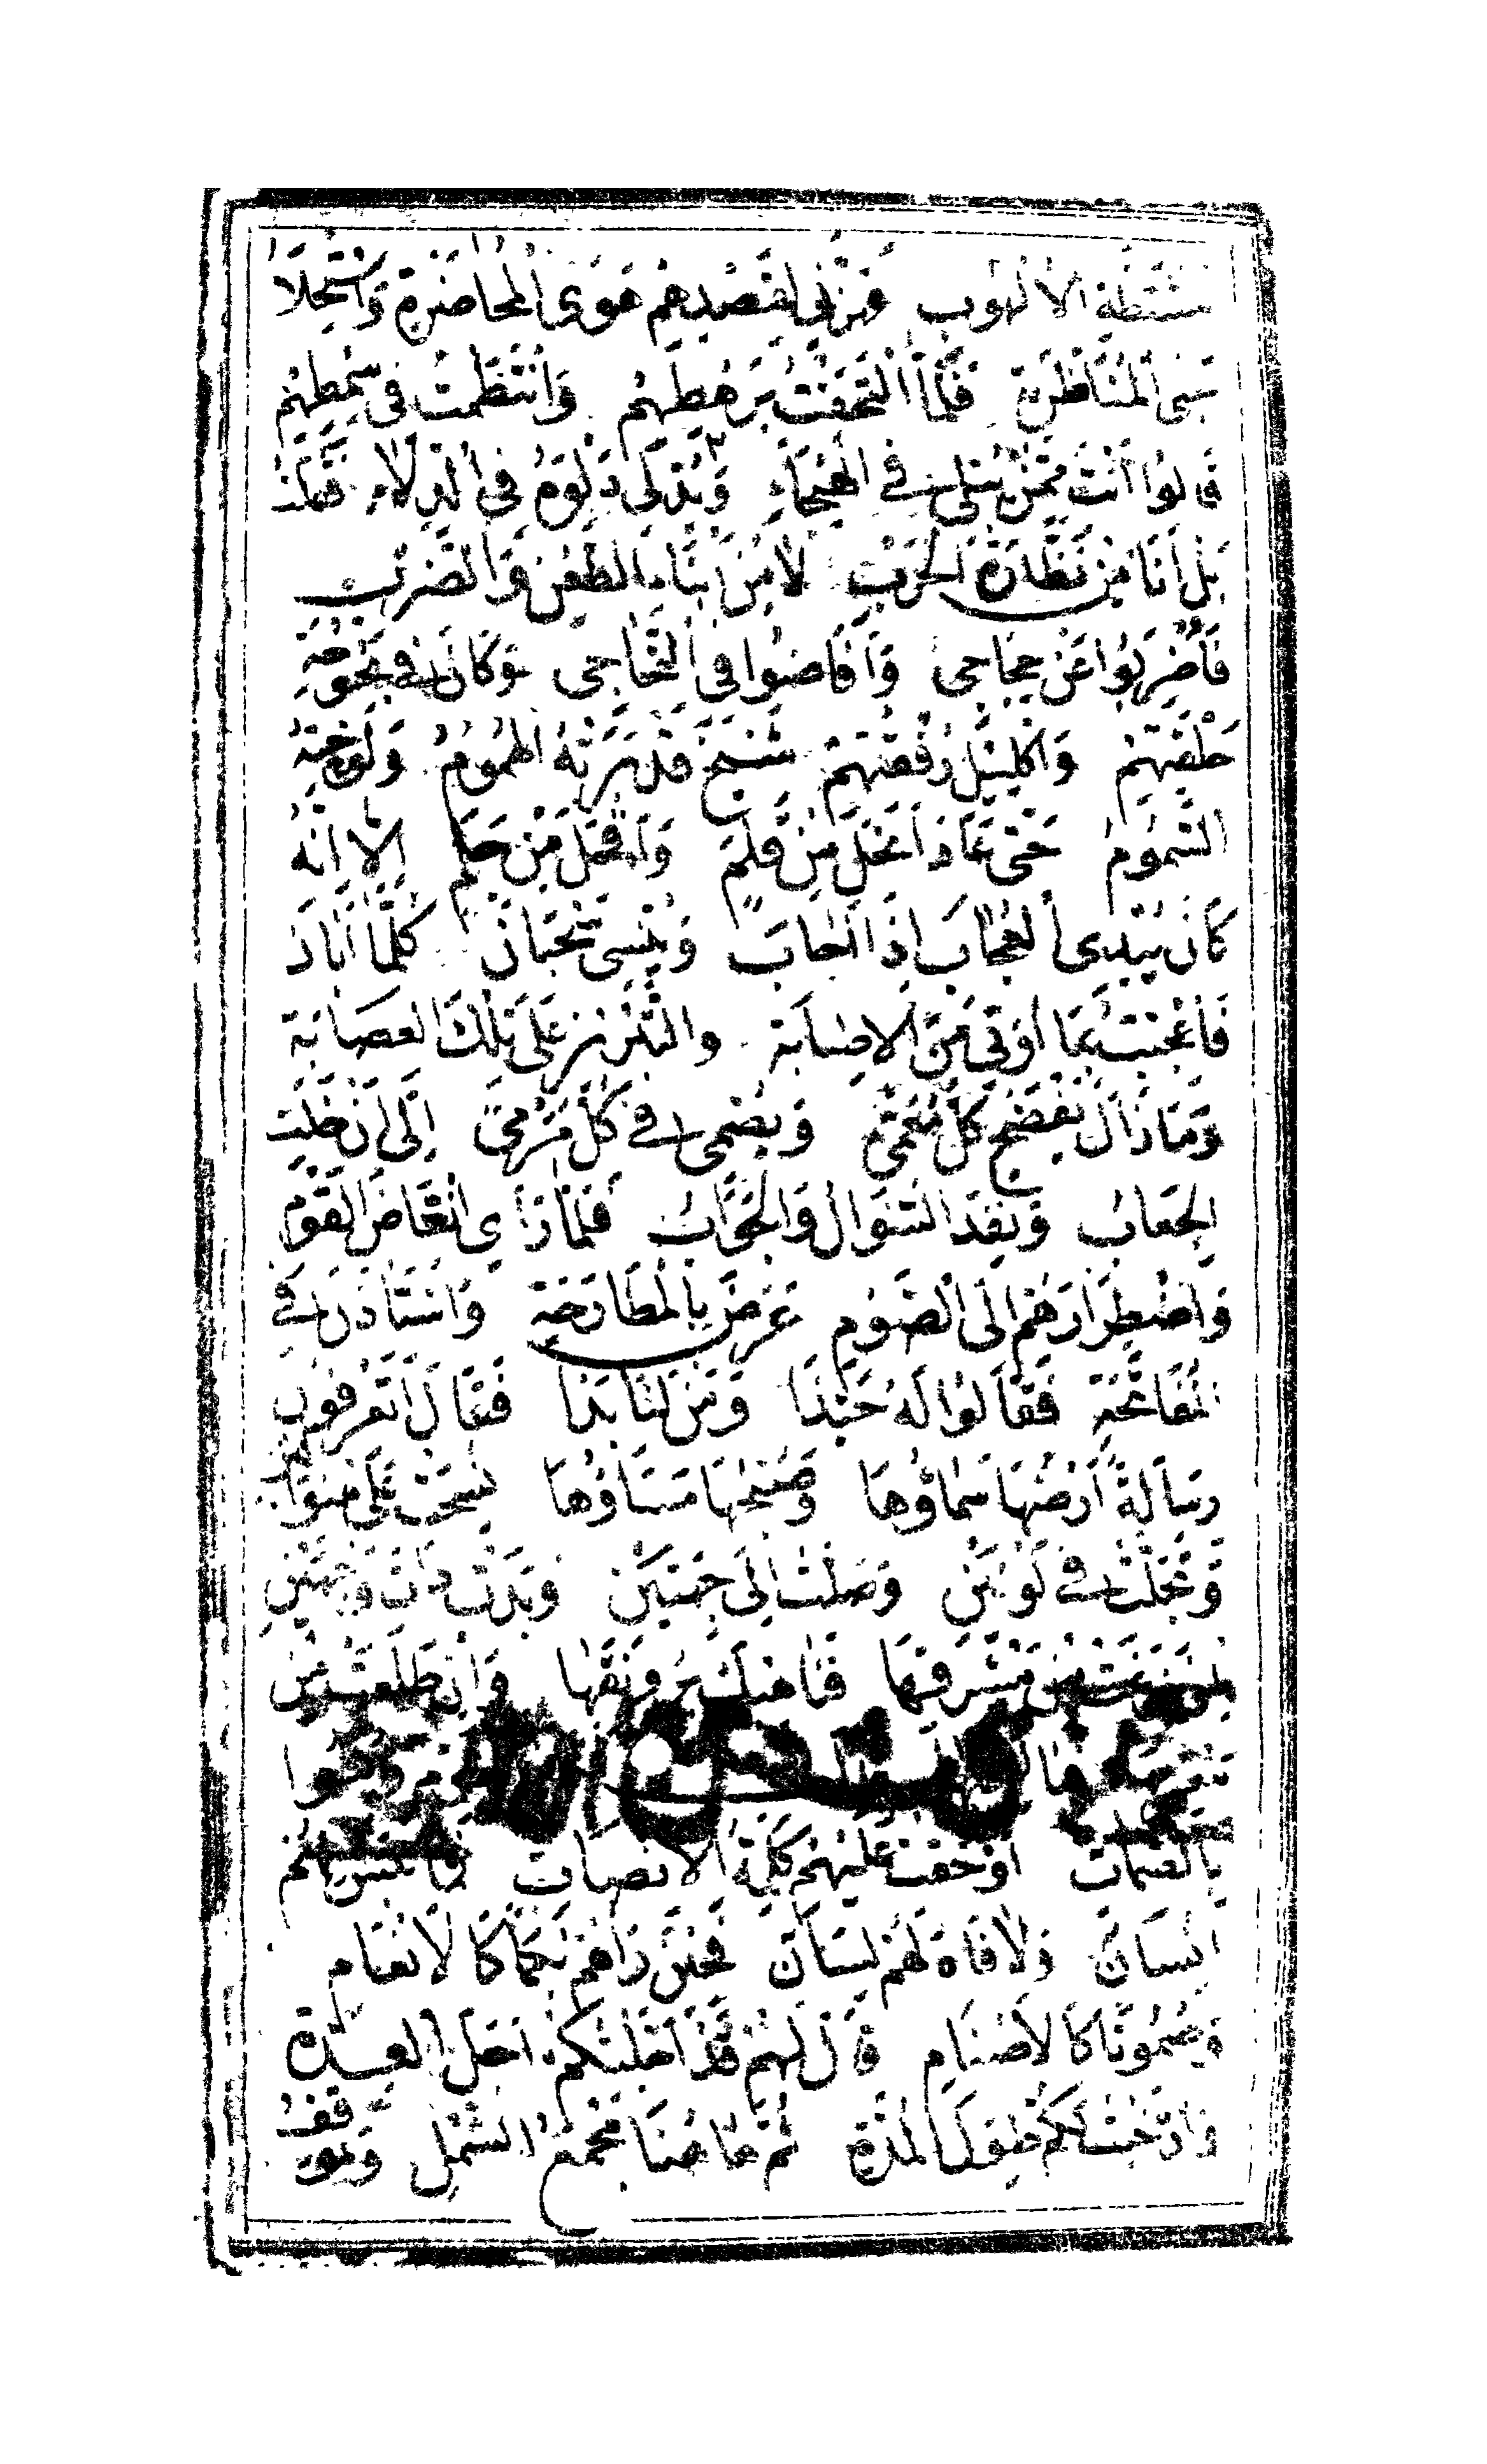 مشتطة الالهوب فهزني لقصدهم هوى المحاضرة واستجلا
جنى المناظرة فلما التحقت برهطهم وانتظمت في سمطهم
قالوا أنت ممن يبلي في الهيجاء ويدلي دلوه في الدلاء فقلت
بل أنا من نظارة الحرب لا من أبناء الطعن والضرب
فأضربوا عن حجاجي وأفاضوا في التحاجي وكان في بحبوحة
حلقتهم وإكليل رفقتهم شيخ قد برته الهموم ولوحته
السموم حتى عاد أنحل من قلم وأقحل من جلم إلا أنه
كان يبدي العجاب إذا أجاب وينسي سحبان كلما أبان
فأعجبت بما أوتي من الإصابة والتبريز على تلك العصابة
وما زال يفضح كل معمى ويصمي في كل مرمى إلى أن خلت
الجعاب ونفد السؤال والجواب فلما رأى انفاض القوم
واضطرارهم إلى الصوم عرض بالمطارحة واستأذن في
المفاتحة فقالوا له حبذا ومن لنا بذا فقال أتعرفون
رسالة أرضها سماؤها وصبحها مساؤها نسجت على منوالين
وتجلت في لونين وصلت إلى جهتين وبدت ذات وجهين
إن بزغت من مشرقها فناهيك برونقها وإن طلعت من
بالصمات أو حقت عليهم كلمة الإنصات فما نبس منهم
إنسان ولا فاه لهم لسان فحين رآهم بكما كالأنعام
وصموتا كالأصنام قال لهم قد أجلتكم أجل العدة
وأرخيت لكم طول المدة ثم هاهنا مجمع الشمل وموقف